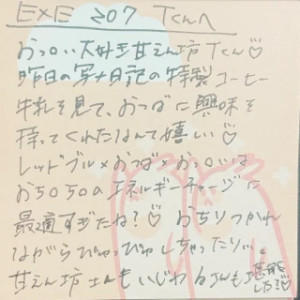 EXE 207 Tくんへ
おっぱい大好き甘えん坊Tくん♡
昨日の写メ日記の特製コーヒー
牛乳を見て、おっぱいに興味を
持ってくれたなんて嬉しい♡
レッドブル×おっぱい×おっぱいは
おちんちんのエネルギーチャージに
最適すぎたね?♡ おちり
ながらぴゅっぴゅしちゃったり…
甘えん坊さんもいじわるSWも堪能
した♡!